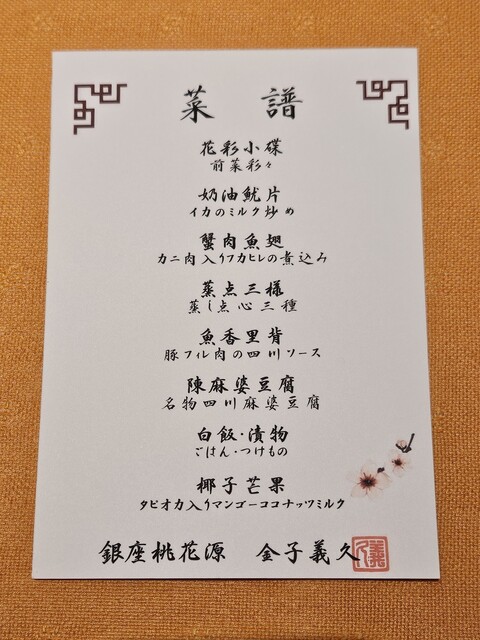 菜 譜
花彩小碟
前菜彩々
奶油魷片
イカのミルク炒め
蟹肉魚翅
カニ肉入りフカヒレの煮込み
蒸点三様
蒸し点心三種
魚香里背
豚フィレ肉の四川ソース
陳麻婆豆腐
名物四川麻婆豆腐
白飯·漬物
ごはん·つけもの
椰子芒果
タピオカ入りマンゴーココナッツミルク
銀座桃花源 金子義久